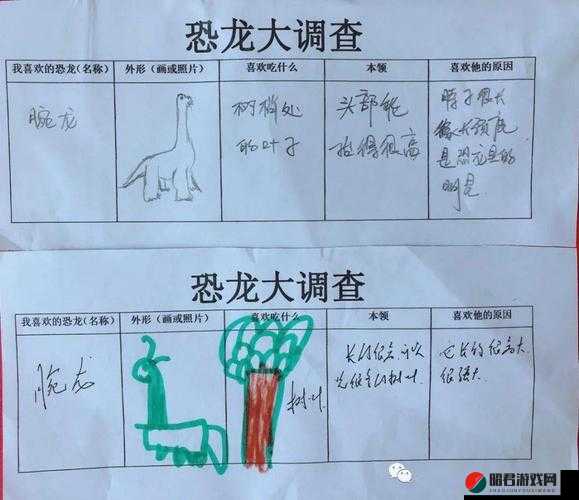 恐龙大调查
我喜欢的恐龙(名称) 外形（画或照片） 喜欢吃什么 本领 喜欢他的原因
腕龙
树梢处
的叶子
头部能
抬得很高
脖子很长
像长颈鹿
是恐龙里的
明星
恐龙大调查
我喜欢的恐龙(名称) 外形（画或照片） 喜欢吃什么 本领 喜欢他的原因
腕龙
树叶
长的很高可以
吃很多的树叶
它长的很高大
很强大
昭君游戏网